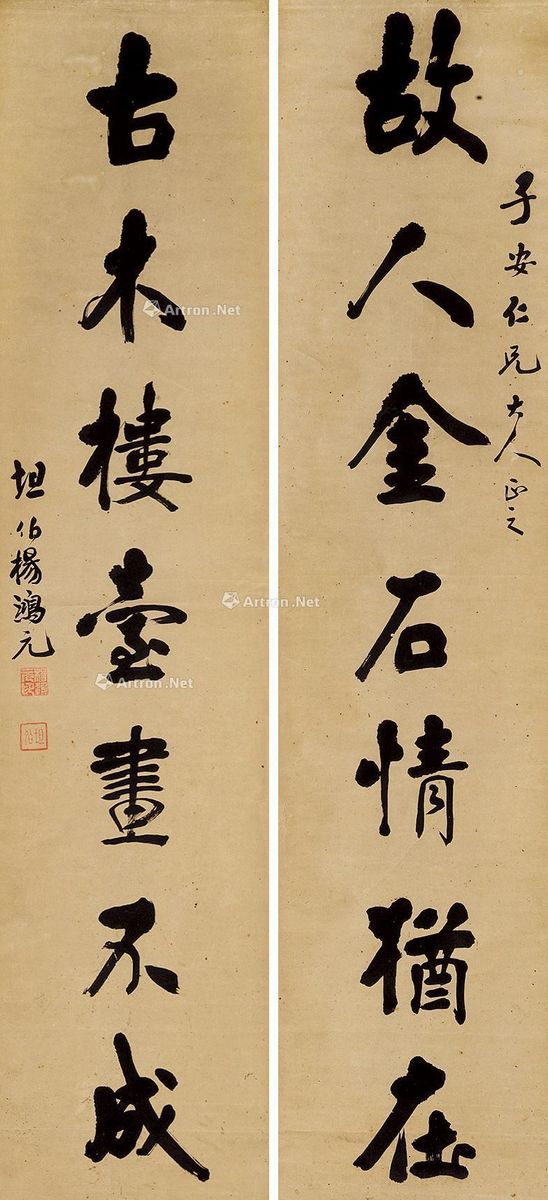 故人金石情猶在
子安仁兄大人正之
古木樓臺畫不成
坦伯楊鴻元
坦伯
Artron.Net
Artron.Net
Artron.Net